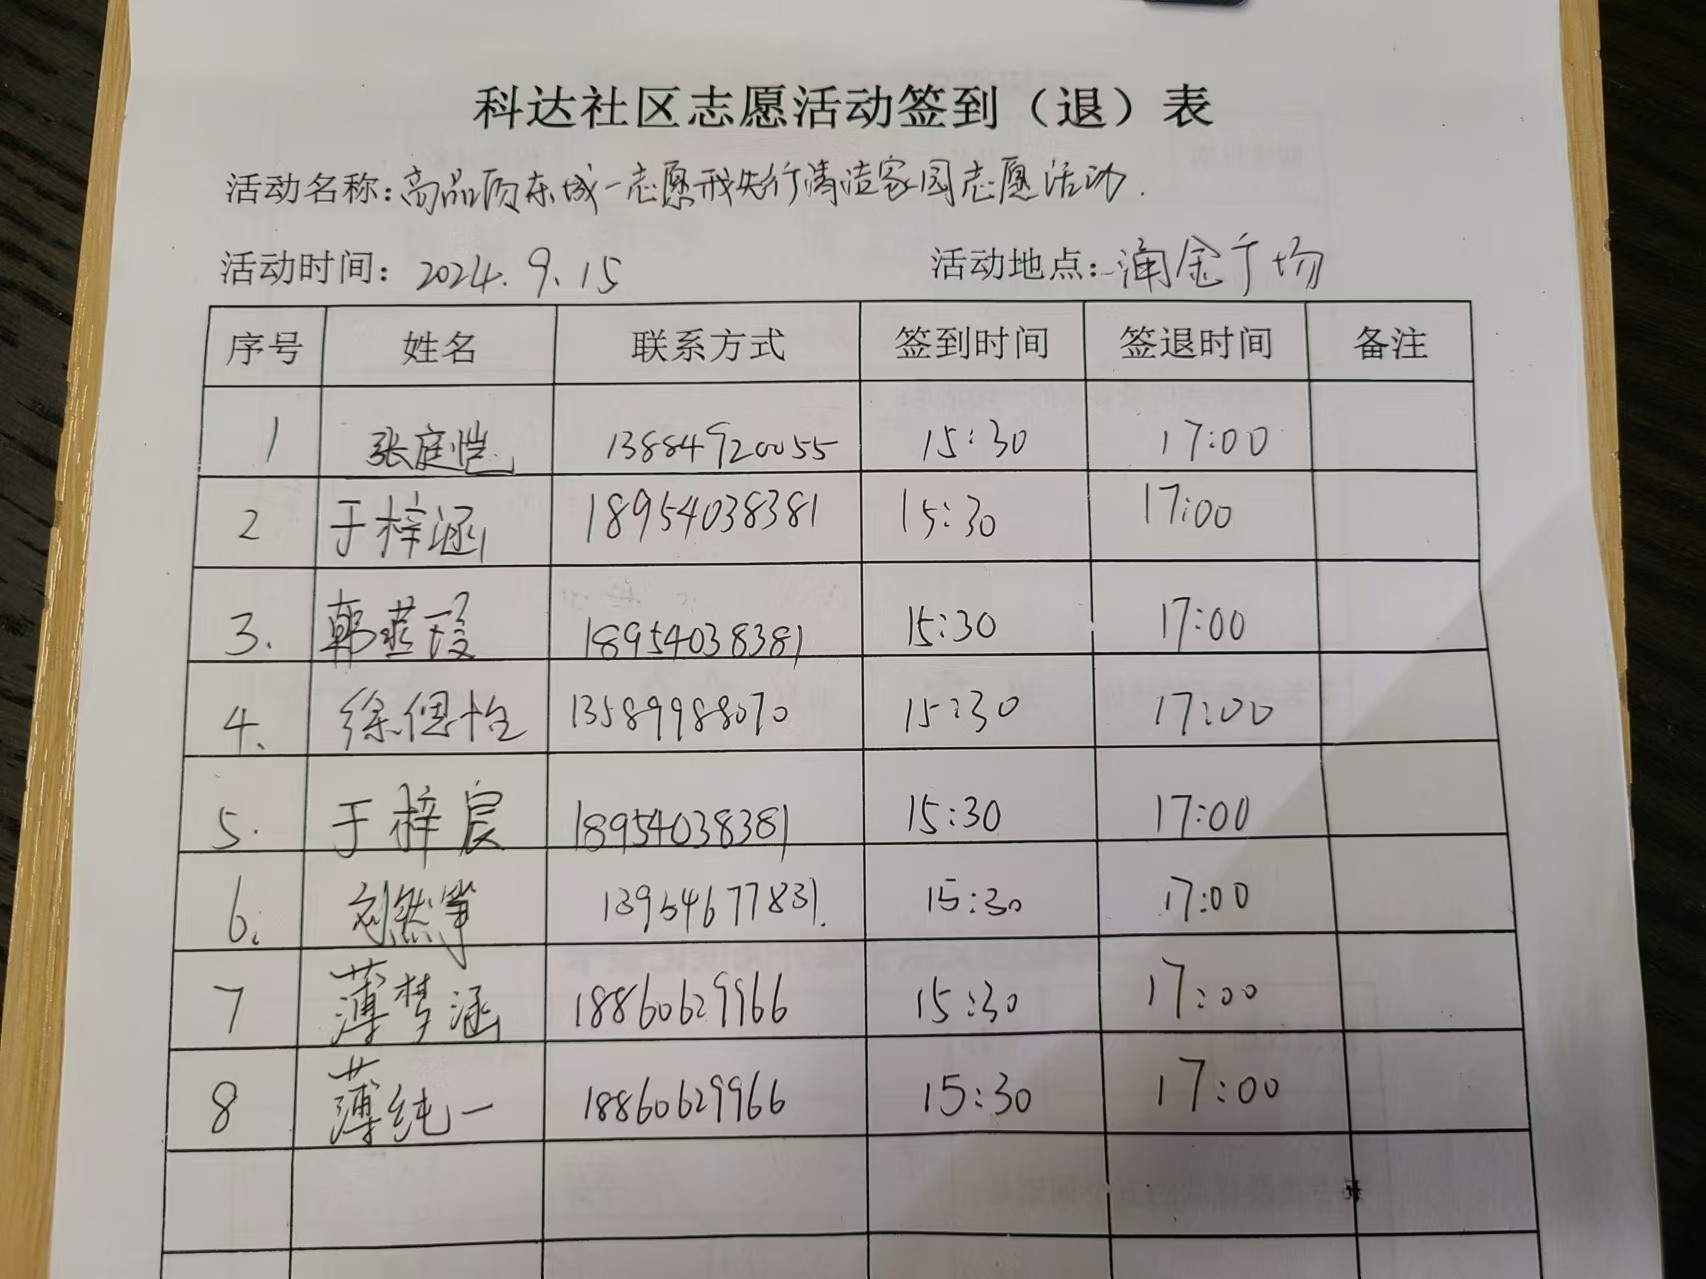 科达社区志愿活动签到（退）表
活动名称:高品质东城一志愿我先行清洁家园志愿活动.
活动时间: 2024.9.15 活动地点: 涌金广场
序号 姓名 联系方式 签到时间 签退时间 备注
1 张庭恺 13884920055 15:30 17:00
2 于梓涵 18954038381 15:30 17:00
3. 韩燕 18954038381 15:30 17:00
4. 徐偲怡 13589988070 15:30 17:00
5. 于梓宸 18954038381 15:30 17:00
6. 刘然筝 13954677831. 15:30 17:00
7 薄梦涵 18860629966 15:30 17:00
8 薄纯一 18860629966 15:30 17:00